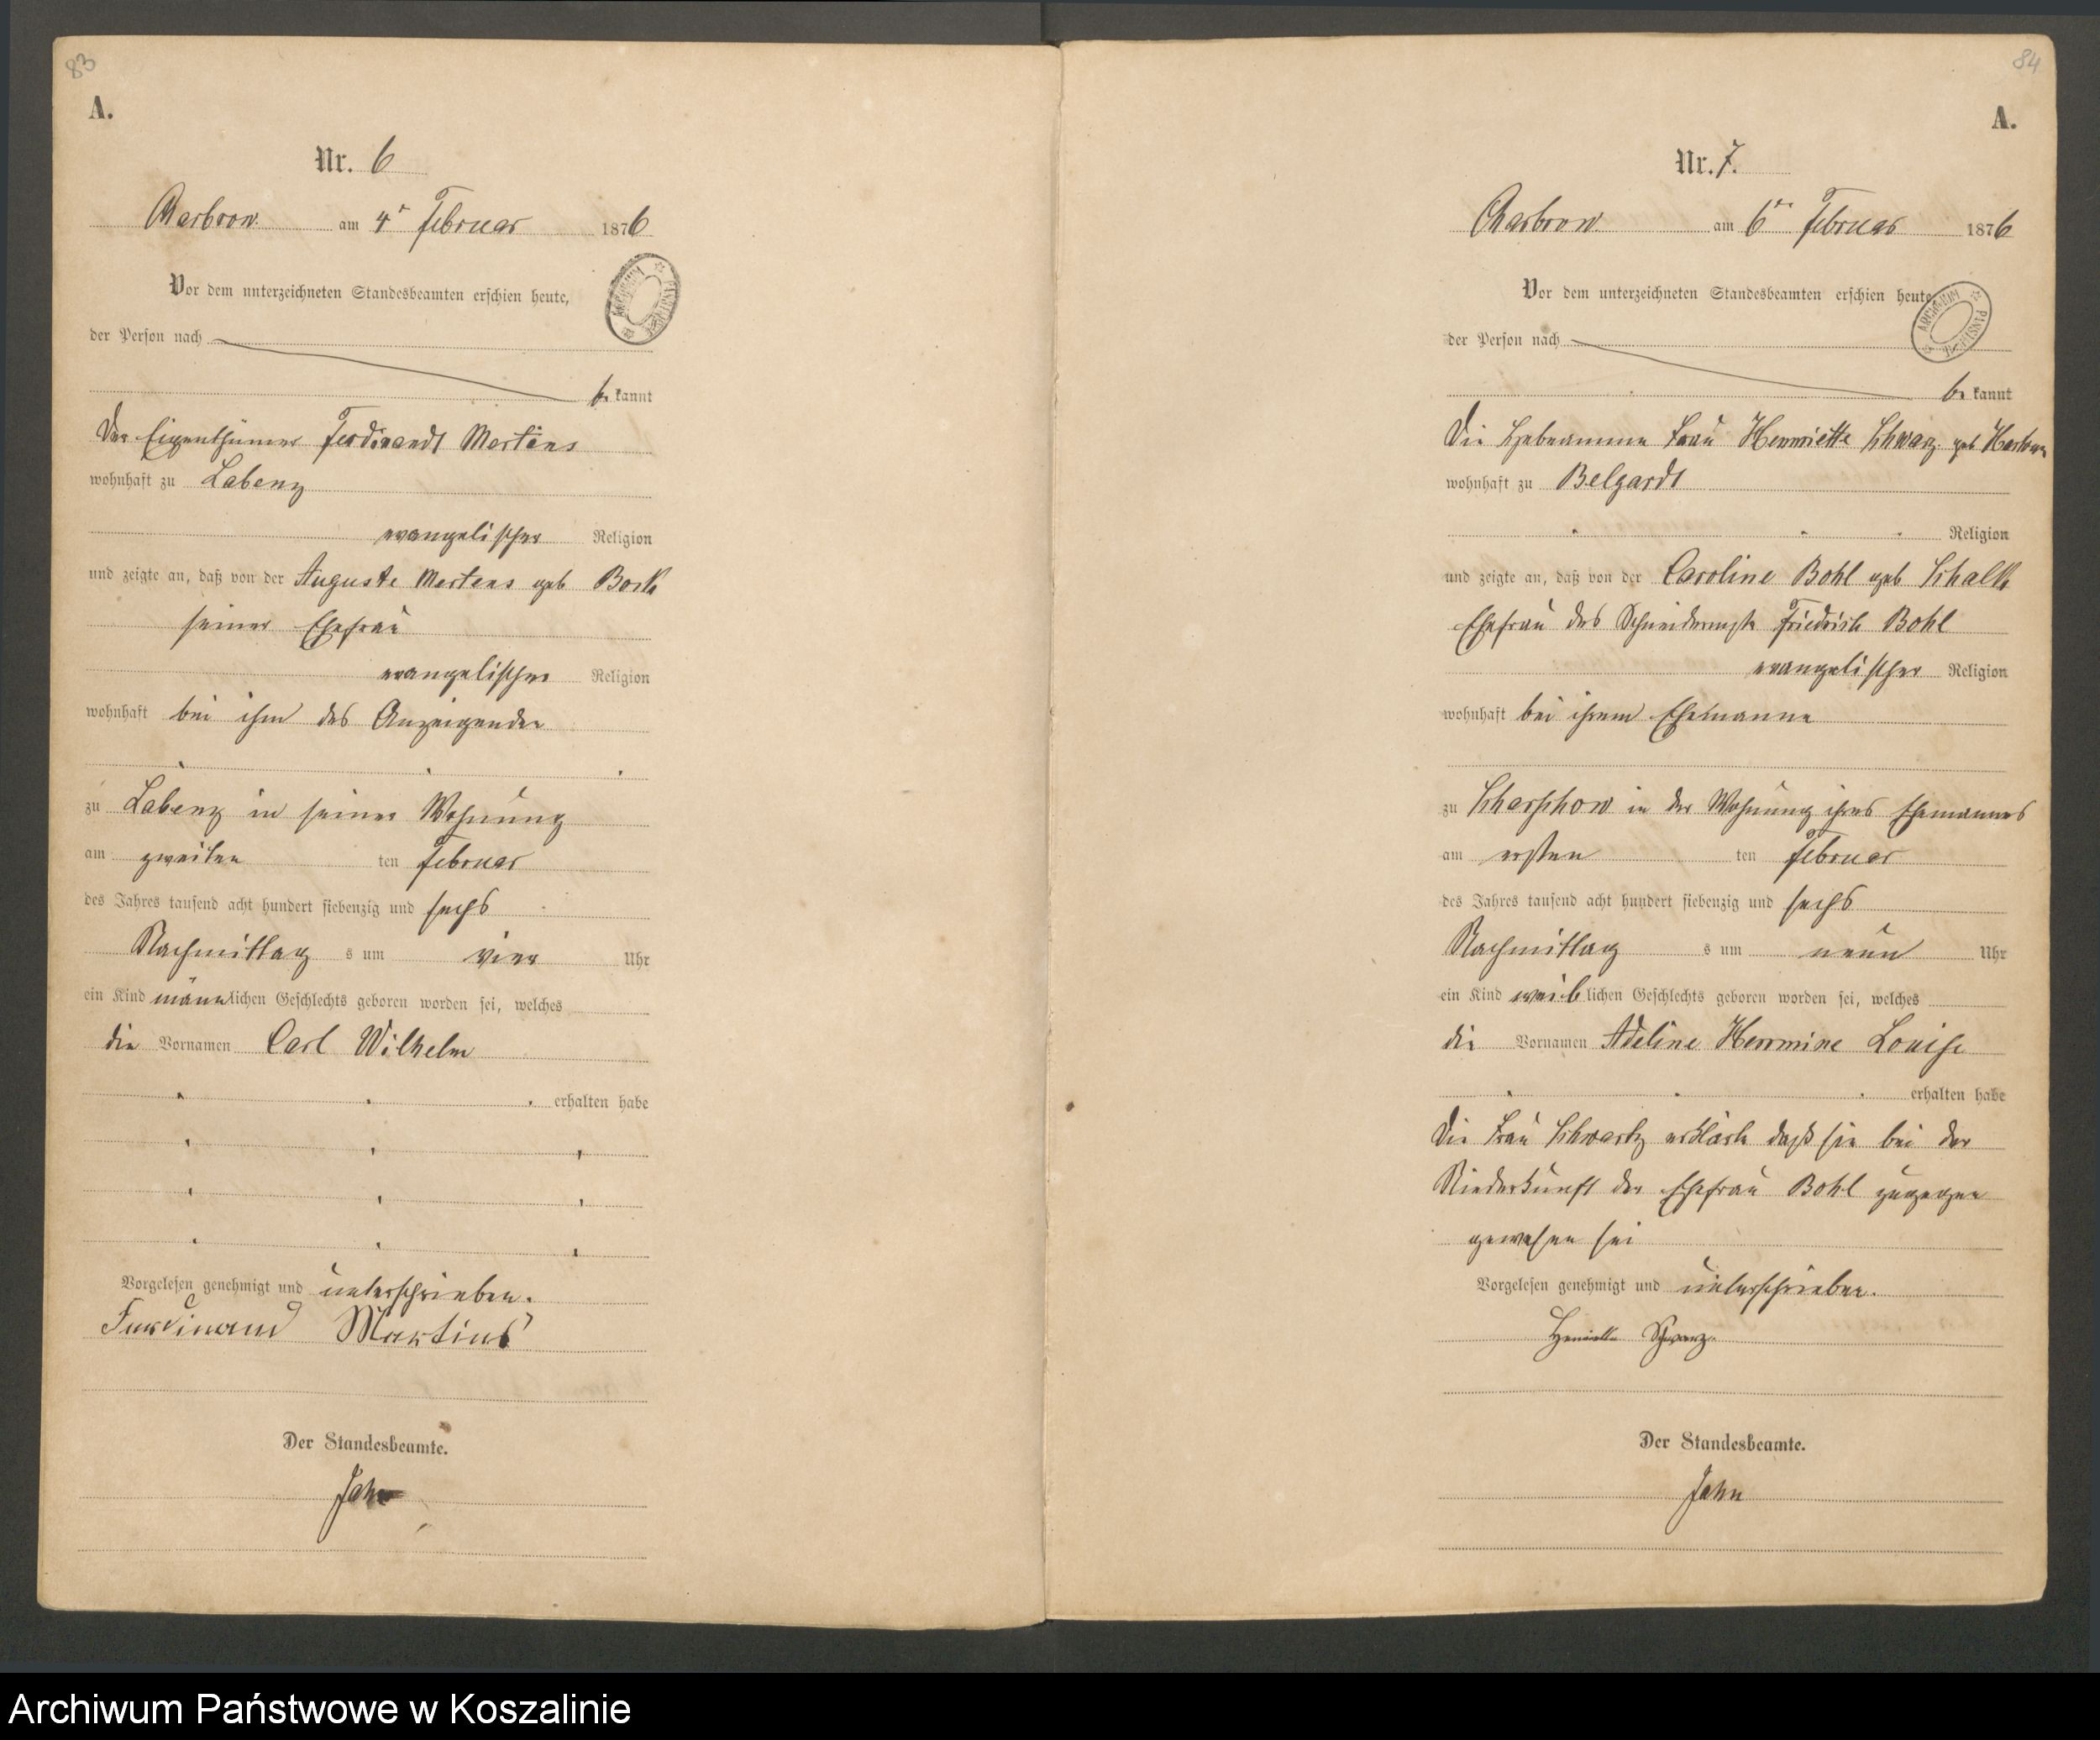 83
A.
Nr. 6
Charbrow. am 4ᵗ Februar 1876
Vor dem unterzeichneten Standesbeamten erschien heute,
der Person nach
be kannt
Der Eigenthümer Ferdinandt Martens
wohnhaft zu Labenz
evangelischer Religion
und zeigte an, daß von der Auguste Martens geb Bork
seiner Ehefrau
evangelischer Religion
wohnhaft bei ihm des Anzeigenden
zu Labenz in seiner Wohnung
am zweiten ten Februar
des Jahres tausend acht hundert siebenzig und sechs
Nachmittag s um vier Uhr
ein Kind männlichen Geschlechts geboren worden sei, welches
die Vornamen Carl Wilhelm
erhalten habe
Vorgelesen genehmigt und unterschrieben.
Ferdinand Martens
Der Standesbeamte.
Jahn
84
A.
Nr. 7.
Charbrow. am 6ᵗᵉⁿ Februar 1876
Vor dem unterzeichneten Standesbeamten erschien heute
der Person nach
be kannt
Die Hebeamme Frau Henriette Schwarz geb
wohnhaft zu Belgardt
Religion
und zeigte an, daß von der Caroline Bohl geb Schalk
Ehefrau des Schneidermstr Friedrich Bohl
evangelischer Religion
wohnhaft bei ihrem Ehemanne
zu Scharschow in der Wohnung ihres Ehemannes
am ersten ten Februar
des Jahres tausend acht hundert siebenzig und sechs
Nachmittag s um neun Uhr
ein Kind weiblichen Geschlechts geboren worden sei, welches
die Vornamen Adeline Herrmine Louise
erhalten habe
Die Frau Schwartz erklärte daß sie bei der
Niederkunft der Ehefrau Bohl zugegen
gewesen sei
Vorgelesen genehmigt und unterschrieben.
Henriette Schwarz.
Der Standesbeamte.
Jahn
Archiwum Państwowe w Koszalinie